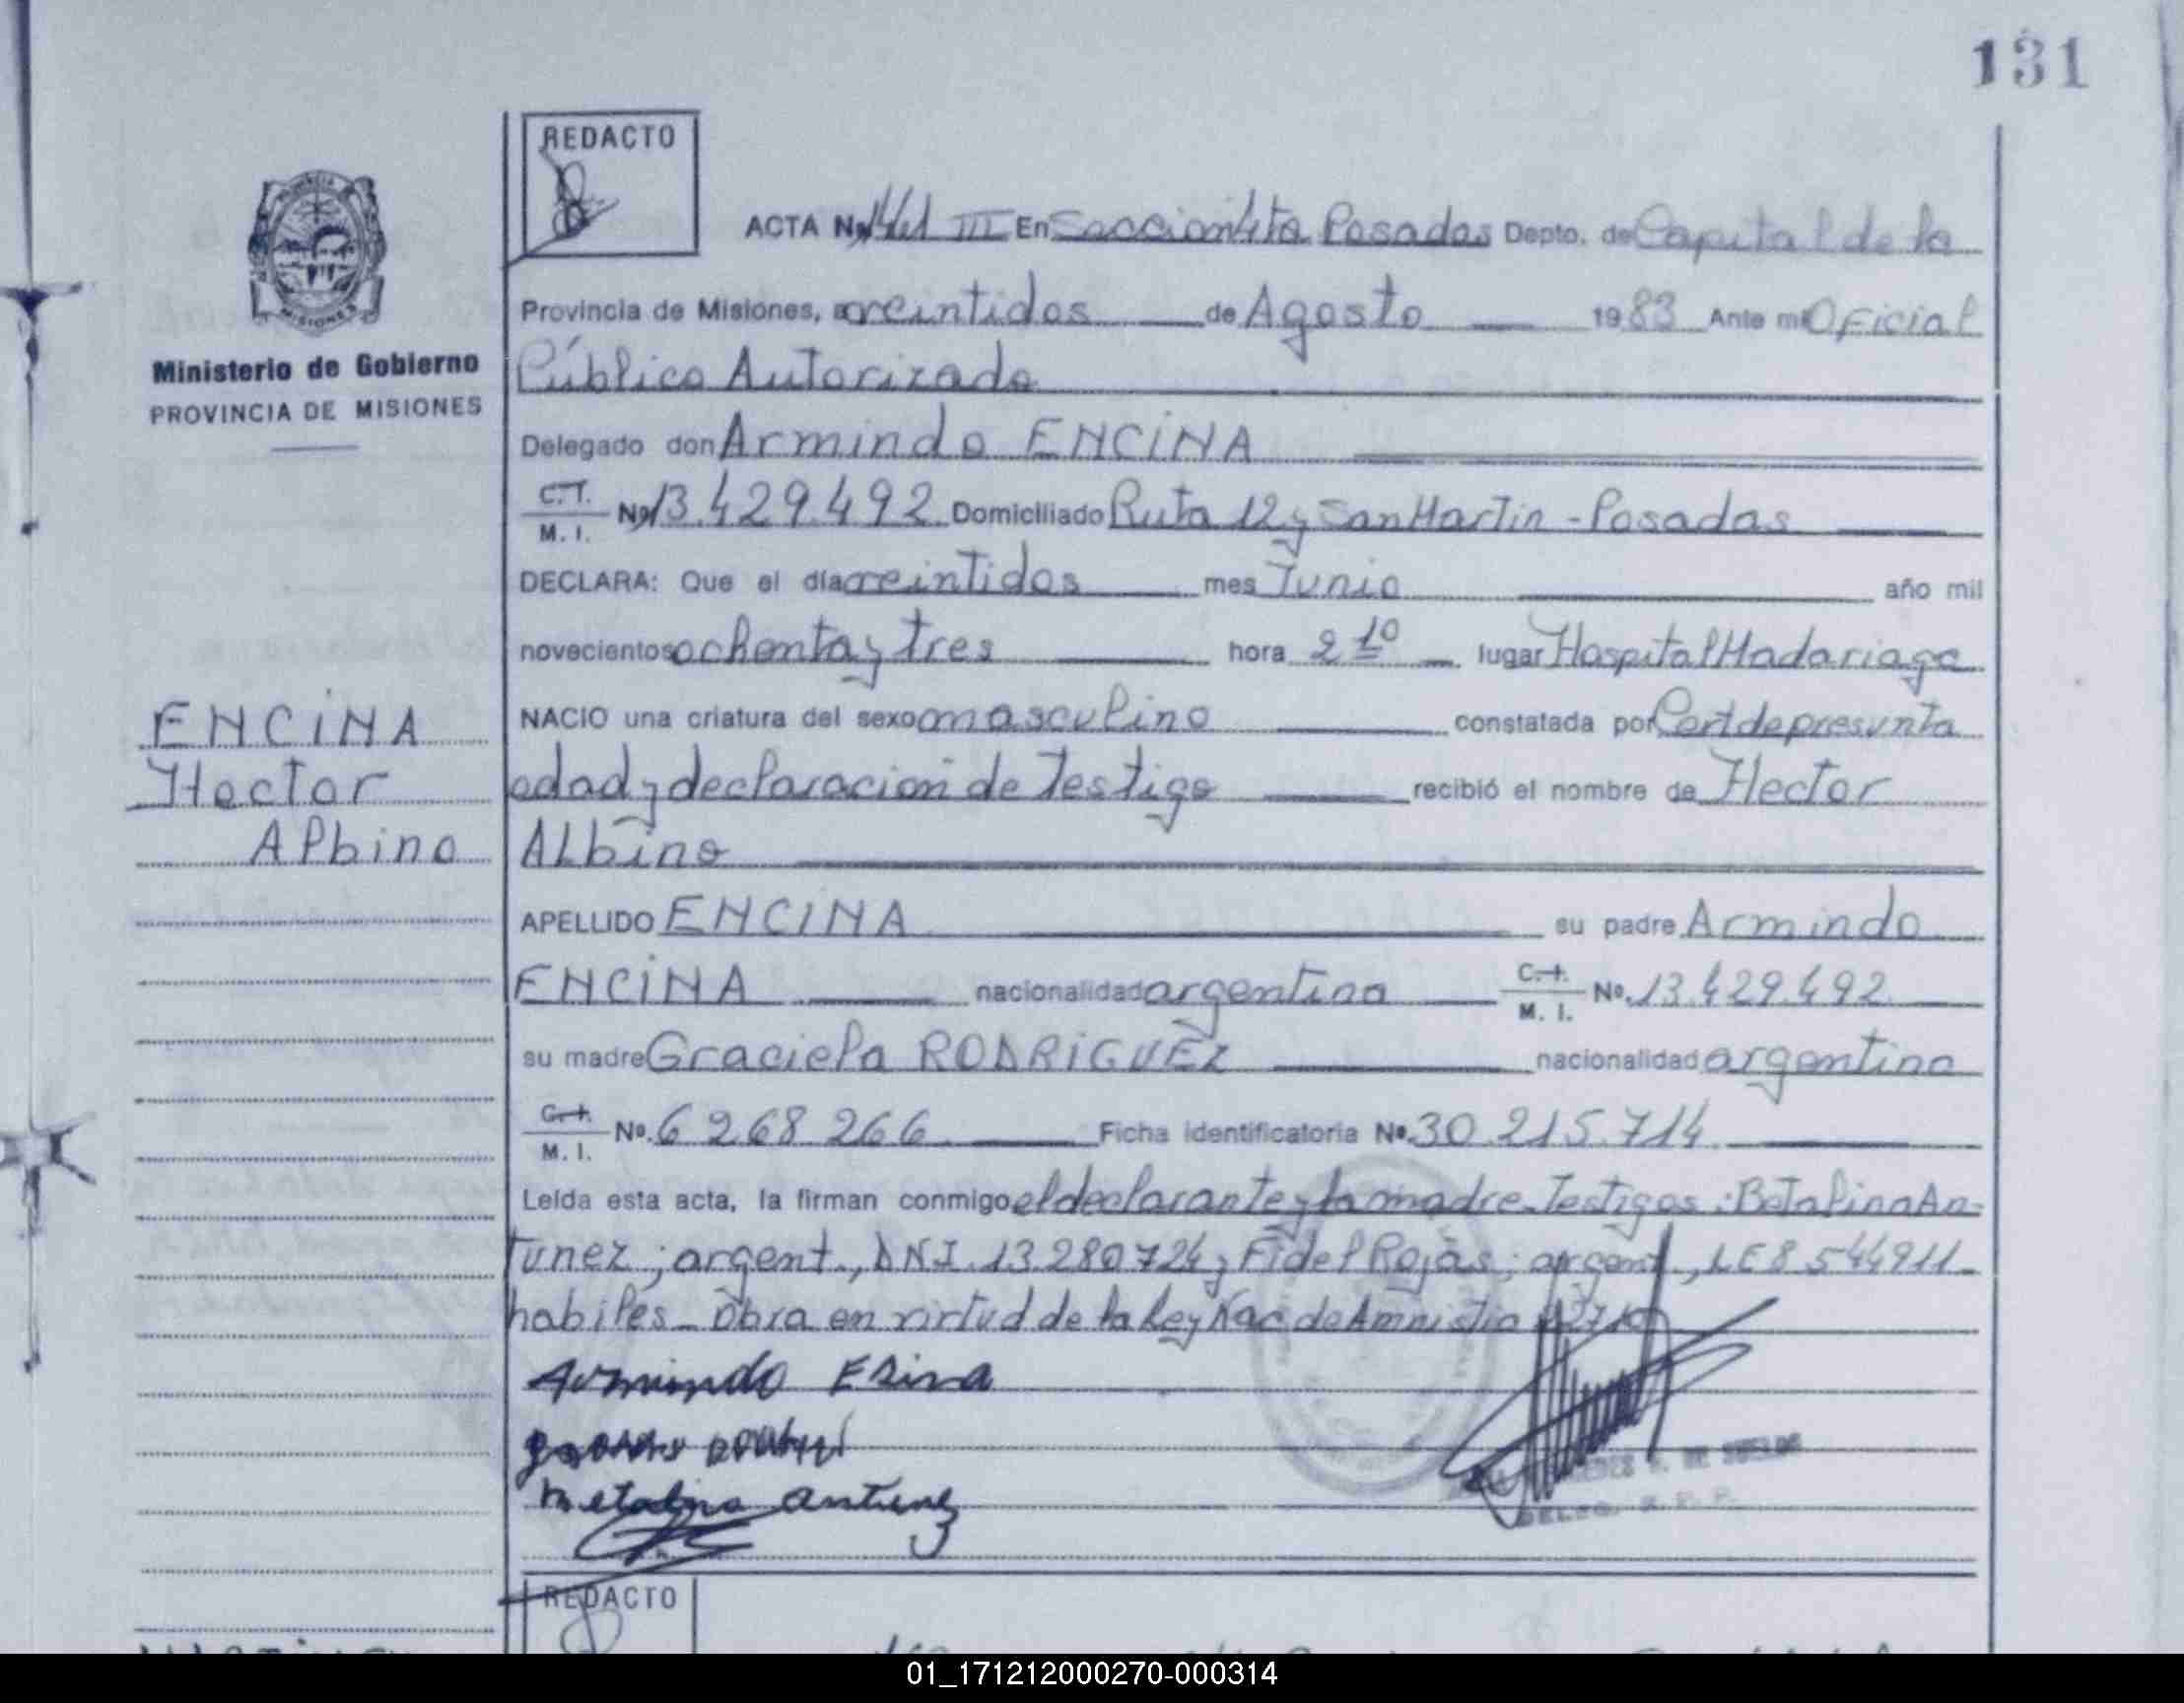 131
REDACTO
ACTA Nº 1441 III En Sección 4ta Posadas Depto. de Capital de la
Provincia de Misiones, a veintidos de Agosto 1983 Ante mi Oficial
Público Autorizado
Ministerio de Gobierno
PROVINCIA DE MISIONES
Delegado don Armindo ENCINA
C.I. M. I. Nº 13.429.492 Domiciliado Ruta 12 y San Martin - Posadas
DECLARA: Que el día veintidos mes Junio año mil
novecientos ochenta y tres hora 2 10 lugar Hospital Madariaga
NACIO una criatura del sexo masculino constatada por Cert de presunta
edad y declaracion de Testigo recibió el nombre de Hector
Albino
ENCINA
Hector
Albino
APELLIDO ENCINA su padre Armindo
ENCINA nacionalidad argentina C.I. M. I. Nº. 13.429.492
su madre Graciela RODRIGUEZ nacionalidad argentina
C.I. M. I. Nº. 6 268 266 Ficha identificatoria Nº. 30.215.714
Leída esta acta, la firman conmigo el declarante y la madre. Testigos: Betalina An-
tunez; argent., DNI. 13.280724 y Fidel Rojas; argent, LE 8 544911-
habiles - Obra en virtud de la Ley Nac de Amnistia
Armindo
antunez
REDACTO
01_171212000270-000314